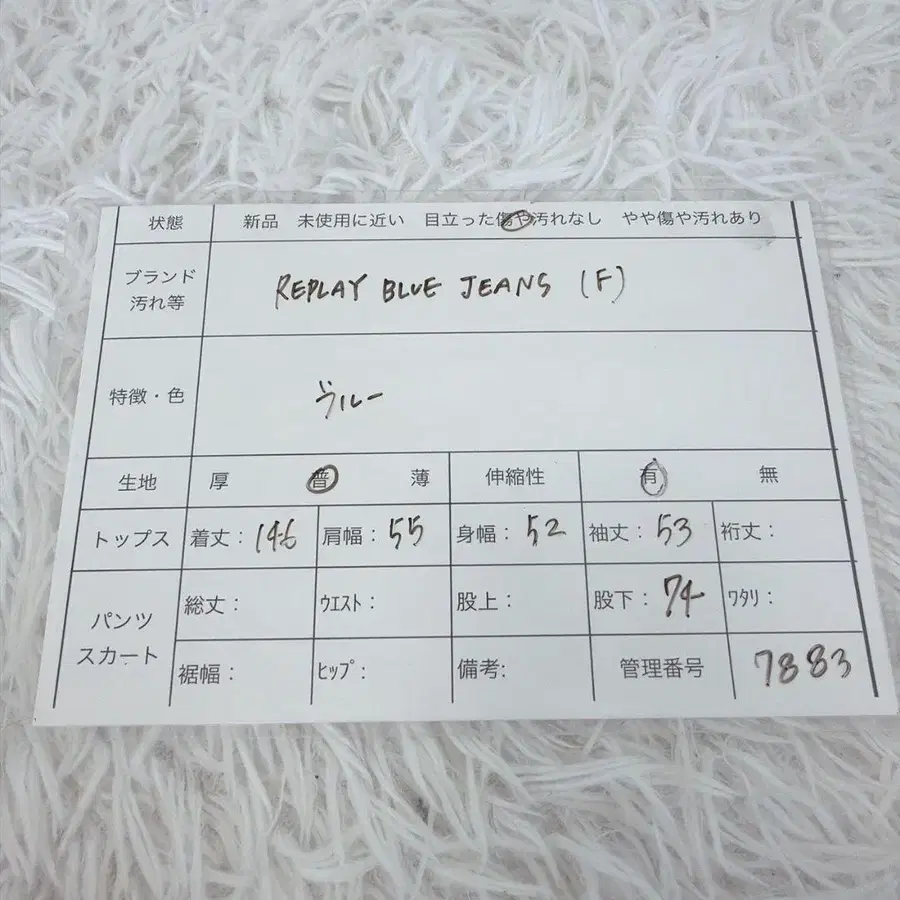 状態 新品 未使用に近い 目立った傷や汚れなし やや傷や汚れあり
ブランド
汚れ等
REPLAY BLUE JEANS (F)
特徴・色 ブルー
生地 厚 普 薄 伸縮性 有 無
トップス 着丈：146 肩幅：55 身幅：52 袖丈：53 裄丈：
パンツ
スカート
総丈： ｳｴｽﾄ： 股上： 股下：74 ﾜﾀﾘ：
裾幅： ﾋｯﾌﾟ： 備考: 管理番号 7883